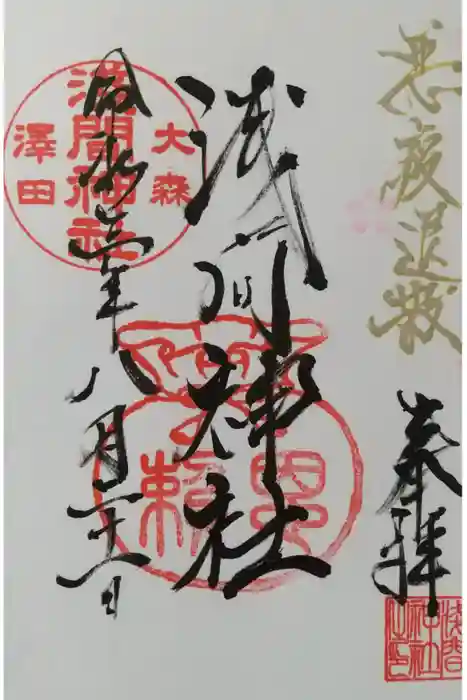 悪疫退散
奉拝
浅間神社之印
浅間神社
大森
淺間神社
澤田
令和三年八月二十一日